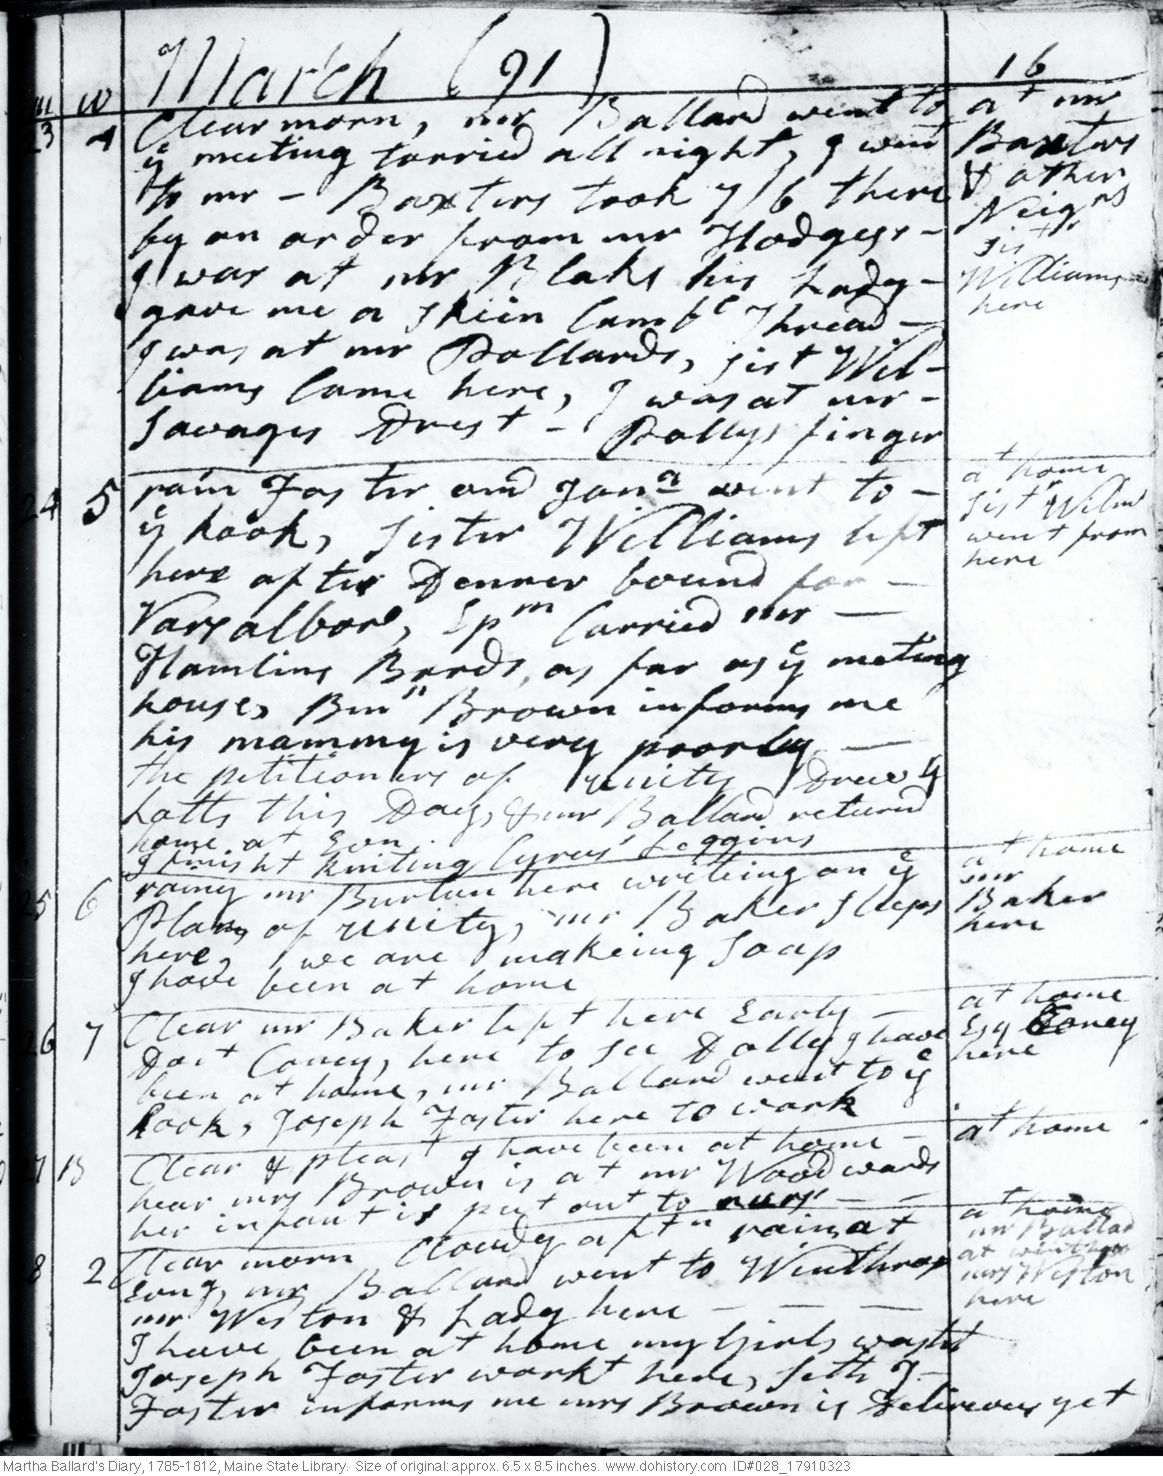 March (91)
16
m w
23 4
Clear morn, mr Ballard went to
ye meeting tarried all night, I went
to mr - Baxters took 7/6 there
by an order from mr Hodges -
I was at mr Blaks his Lady -
gave me a skiin Camb c Thread -
I was at mr Pollards, sist Wil-
liams Came here, I was at mr -
Savages Drest - Pollys finger
at mr
Baxters
& other
Neigrs
sist
Williams
here
24 5
rain Foster and Jonn went to -
ye hook, Sister Williams left
here after Denner bound for -
Varsalboro, Epm Carried mr -
Hamlins Bords, as far as ye meting
house, Bmn Brown informs me
his mammy is very poorly -
the petitioners of unity Drew ye
Lotts this Day, & mr Ballard returnd
home at Evn
I finisht kniting Cyrus' Loggins
at home
sistr Wilms
went from
here
25 6
rainy mr Burton here writeing on ye
Plan, of unity, mr Baker sleeps
here, we are makeing Soap
I have been at home
at home
mr
Baker
here
26 7
Clear mr Baker left here Early -
Doct Coney, here to see Dolly I have
been at home, mr Ballard went to ye
hook, Joseph Foster here to work
at home
Esq Coney
here
27 1S
Clear & pleast I have been at home -
hear mrs Brown is at mr Woodwards
her infant is put out to nurs' - -
at home
8 2
Clear morn Cloudy aftn rain at
Evng, mr Ballard went to Winthrop
mr Weston & Lady here - - -
I have been at home my Girls washt
Joseph Foster workt here, Seth F-
Foster informs me mrs Brown is Delireous yet
at home
mr Ballard
at winthrop
mrs Weston
here
Martha Ballard's Diary, 1785-1812, Maine State Library. Size of original: approx. 6.5 x 8.5 inches. www.dohistory.com ID#028_17910323